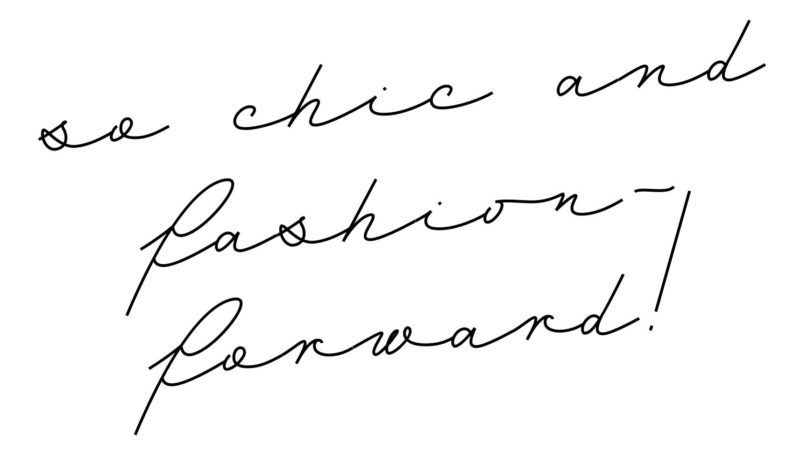 so chic and
fashion-
forward!